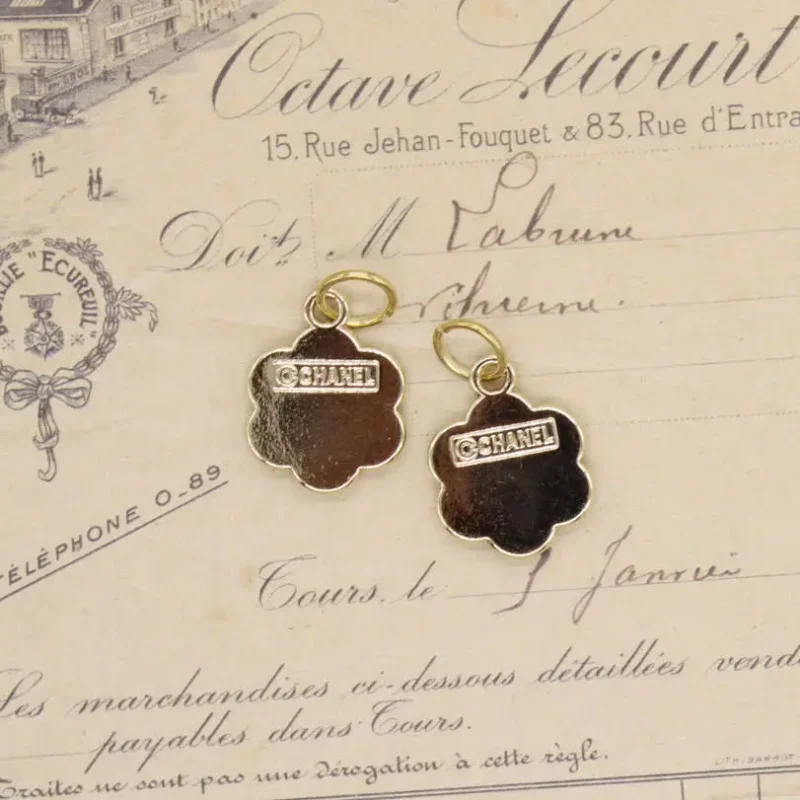 Octave Lecourt
15, Rue Jehan-Fouquet & 83, Rue d'Entra
Doit M Labrune
"ECUREUIL"
©CHANEL
©CHANEL
TÉLÉPHONE 0-89
Tours, le Janvier
Les marchandises ci-dessous détaillées vend
payables dans Tours.
Traites ne sont pas une dérogation à cette règle.
LITH. BARBOT